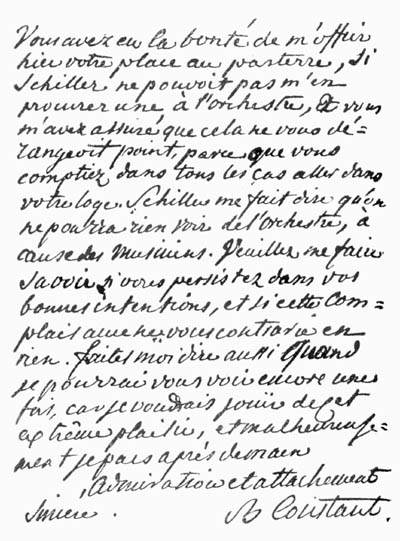 Vous avez eu la bonté de m'offrir
hier votre place au parterre, si
Schiller ne pouvoit pas m'en
procurer une à l'orchestre, Et vous
m'avez assuré que cela ne vous dé=
rangeoit point, parce que vous
comptiez dans tous les cas aller dans
votre loge. Schiller me fait dire qu'on
ne pourra rien voir de l'Orchestre, à
cause des Musiciens. Veuillez me faire
savoir si vous persistez dans vos
bonnes intentions, et si cette Com=
plaisance ne vous contrarie en
rien. faites moi dire aussi Quand
je pourrai vous voir encore une
fois, car je voudrais jouir de cet
extrême plaisir, et malheureuse=
ment je pars après demain
Admiration et attachement
sincere. B Constant.